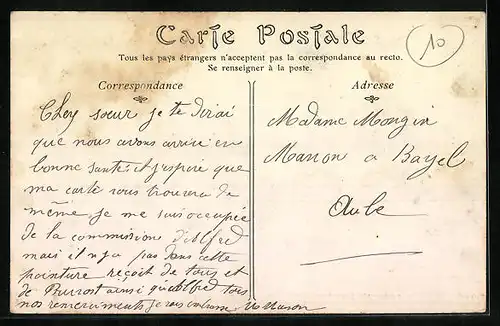 Carte Postale
10
Tous les pays étrangers n'acceptent pas la correspondance au recto.
Se renseigner à la poste.
Correspondance
Chey sœur je te dirai
que nous avons arrivé en
bonne santé et j'espère que
ma carte vous trouvera de
même je me suis occupée
de la commission d'Alfred
mais il n'y a pas dans cette
pointure reçoit de tous et
de Burrost ainsi qu'Alfred tous
nos remerciments je vais embrasse Vve Masson
Adresse
Madame Mongin
Masson a Bayel
Aube